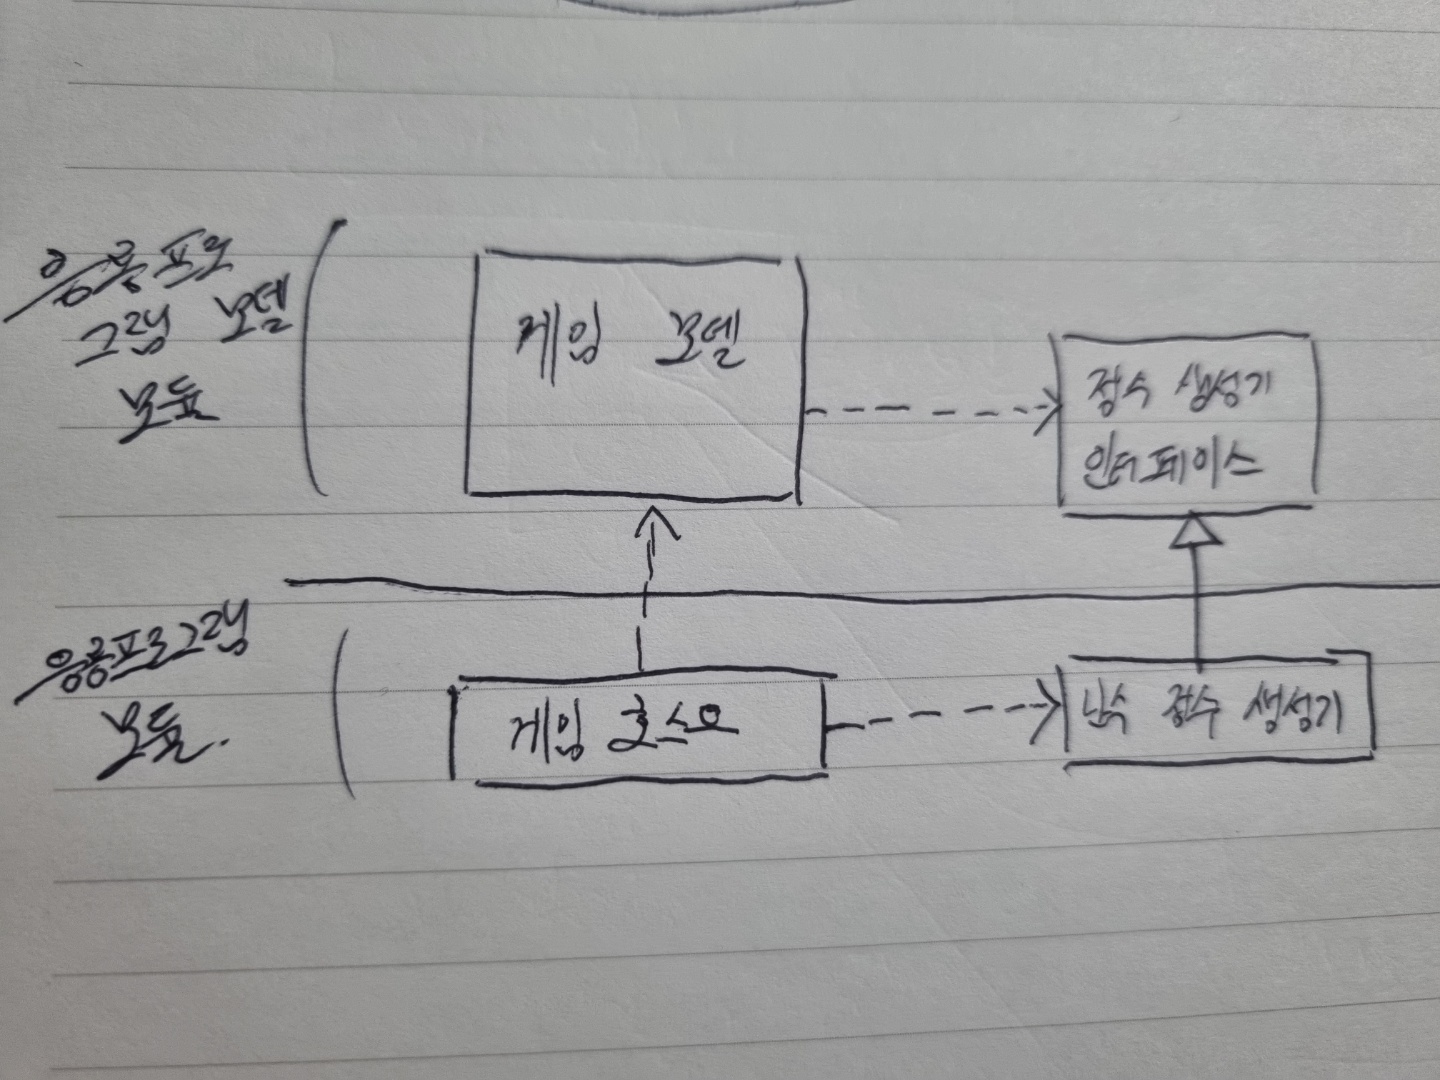 응용프로
그램 모델
모듈
게임 모델
점수 생성기
인터페이스
응용프로그램
모듈.
게임 콘솔
난수 점수 생성기